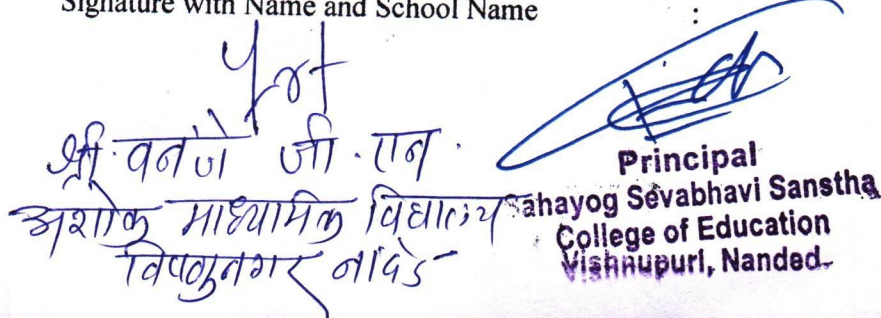 Signature with Name and School Name :
श्री. वनंजे जी. एन.
अशोक माध्यमिक विद्यालय
विष्णुनगर नांदेड
Principal
Sahayog Sevabhavi Sanstha
College of Education
Vishnupuri, Nanded.